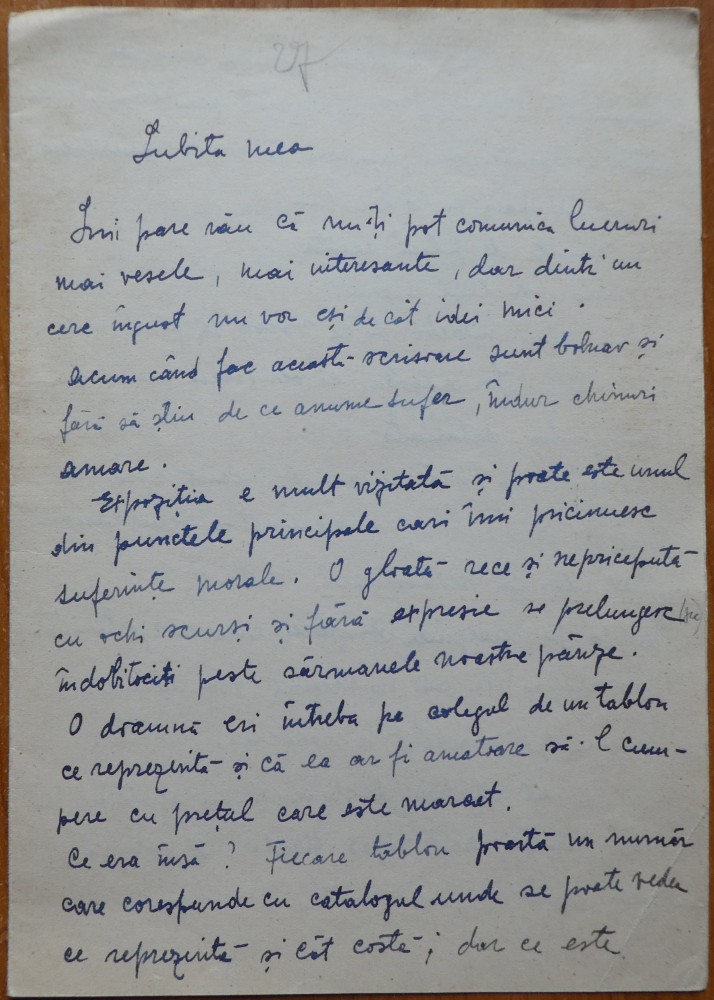 297
Iubita mea
Îmi pare rău că nu-ți pot comunica lucruri
mai vesele, mai interesante, dar dintr'un
cerc îngust nu vor eși de cât idei mici.
Acum când fac această scrisoare sunt bolnav și
fără să știu de ce anume sufer, îndur chinuri
amare.
Expoziția e mult vizitată și poate este unul
din punctele principale cari îmi pricinuesc
suferințe morale. O gloată rece și nepricepută
cu ochi scurși și fără expresie se prelungesc (sic)
îndobitociți peste sărmanele noastre pânze.
O doamnă eri întreba pe colegul de un tablou
ce reprezintă și că ea ar fi amatoare să-l cum-
pere cu prețul care este marcat.
Ce era însă? Fiecare tablou poartă un număr
care corespunde cu catalogul unde se poate vedea
ce reprezintă și cât costă; dar ce este